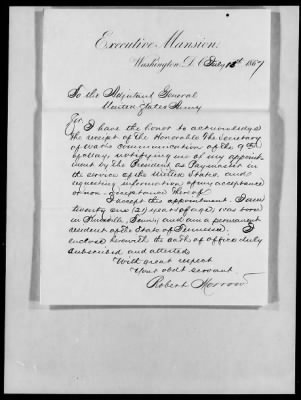 Executive Mansion,
Washington, D. C. July 15th 1867
To the Adjutant General
United States Army
Sir,
I have the honor to acknowledge
the receipt of the Honorable the Secretary
of War's communication of the 9th
of May, notifying me of my appoint
ment by the President as Paymaster in
the service of the United States, and
requesting information of my acceptance
or non-acceptance thereof
I accept this appointment. I am
twenty one (21) years of age, was born
in Knoxville, Tenn; and am a permanent
resident of the State of Tennessee. I
enclose herewith the oath of office duly
subscribed and attested
With great respect
Your obdt servant
Robert Morrow